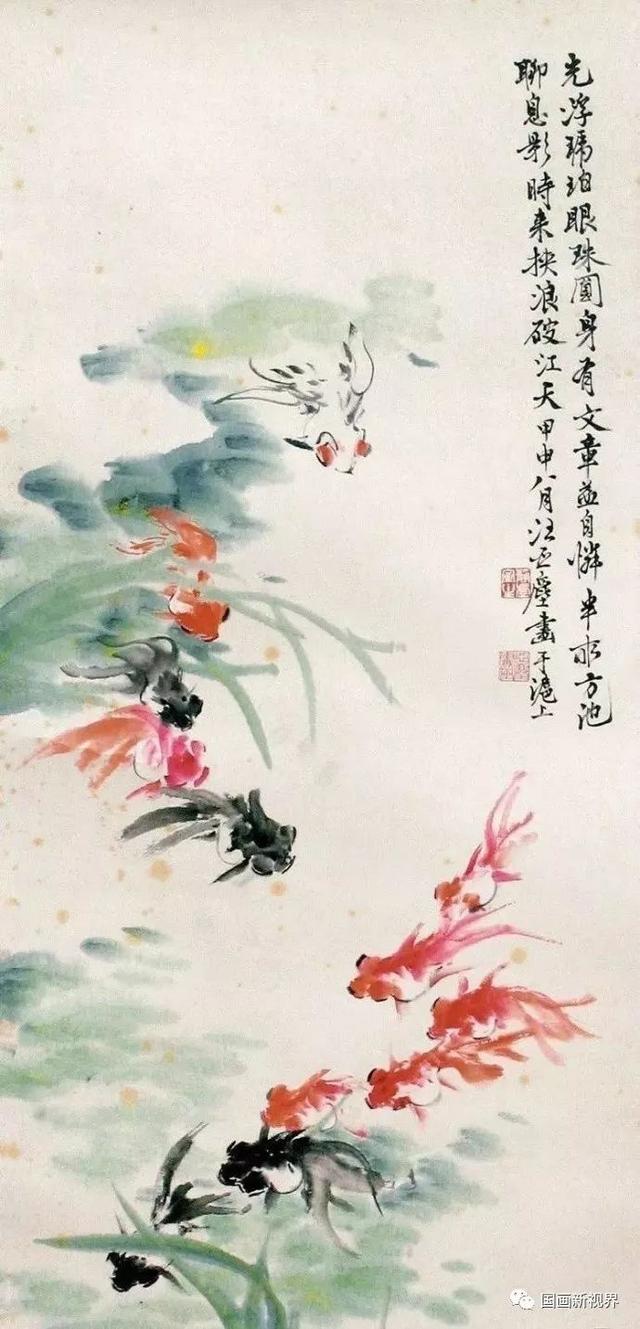 光浮琥珀眼珠圓身有文章益自憐半畝方池
聊息影時来抉浪破江天甲申八月汪亞塵畫于滬上
国画新视界